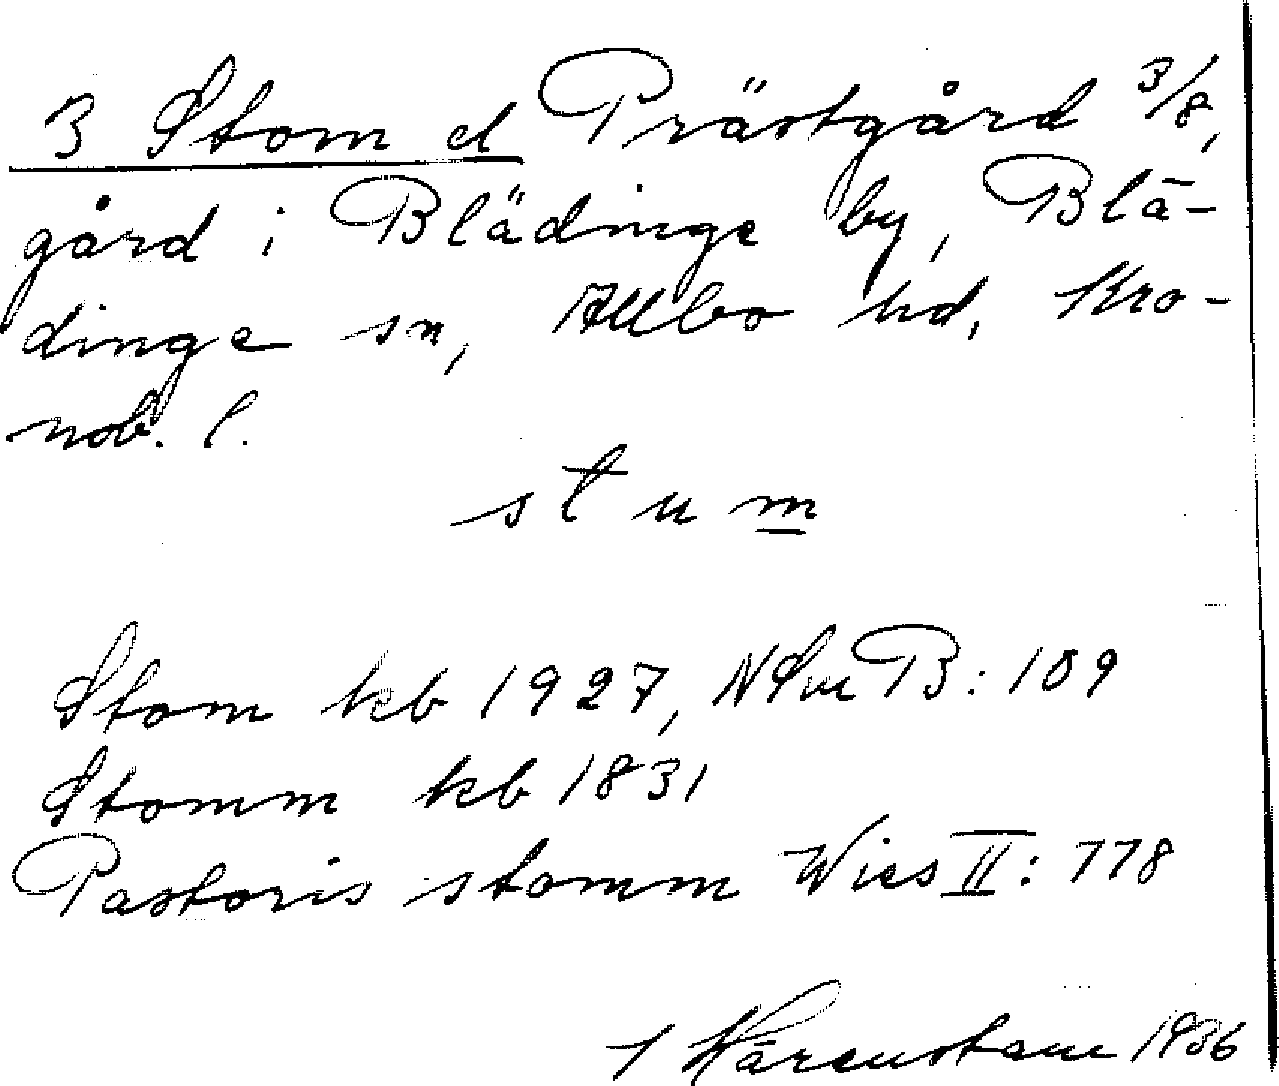 3 Stom el Prästgård 3/8,
gård i Blädinge by, Blä-
dinge sn, Allbo hd, Kro-
nob. l.
stum
Stom kb 1927, NSmB: 109
Stomm kb 1831
Pastoris stomm Wies II: 778
Wärenstam 1936